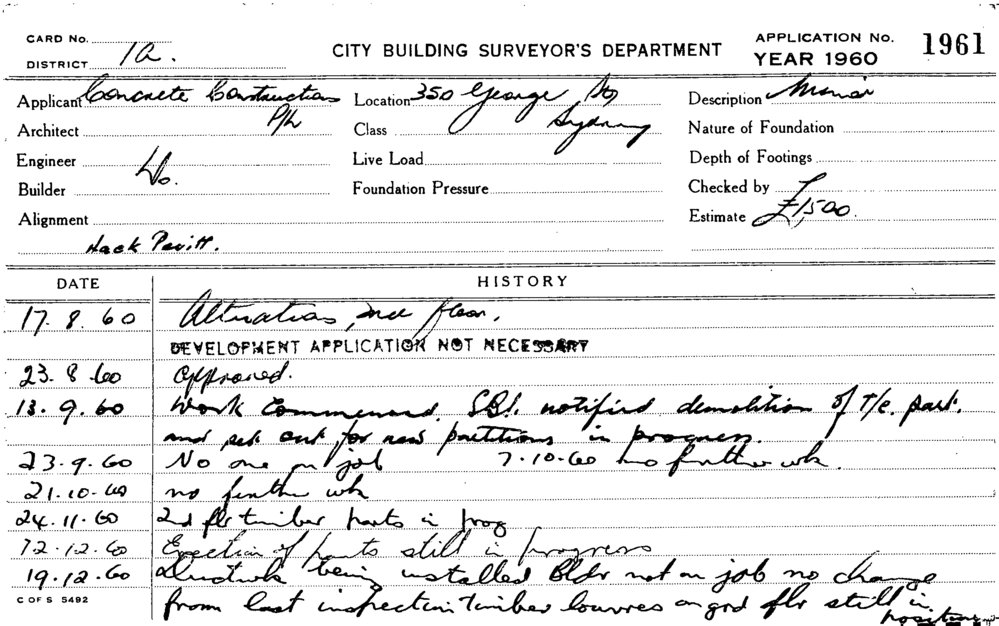 CARD No.
DISTRICT 1a.
CITY BUILDING SURVEYOR'S DEPARTMENT
APPLICATION No. 1961
YEAR 1960
Applicant Concrete Constructions P/L
Location 350 George St Sydney
Description Minor
Architect
Class
Nature of Foundation
Engineer
Live Load
Depth of Footings
Builder Do.
Foundation Pressure
Checked by
Alignment
Estimate £1,500.
Hack Pevitt.
DATE HISTORY
17. 8. 60 Alterations, 2nd floor.
DEVELOPMENT APPLICATION NOT NECESSARY
23. 8. 60 Approved.
13. 9. 60 Work Commenced. SBI. notified demolition of T/c. part.
and set out for new partitions in progress.
23. 9. 60 No one on job 7.10.60 no further wk.
21.10.60 no further wk
24.11.60 2nd flr timber parts in prog
12.12.60 Erection of parts still in progress
19.12.60 Ductwk being installed Bldr not on job no change
from last inspection timber louvres on grd flr still in position
C OF S 5492